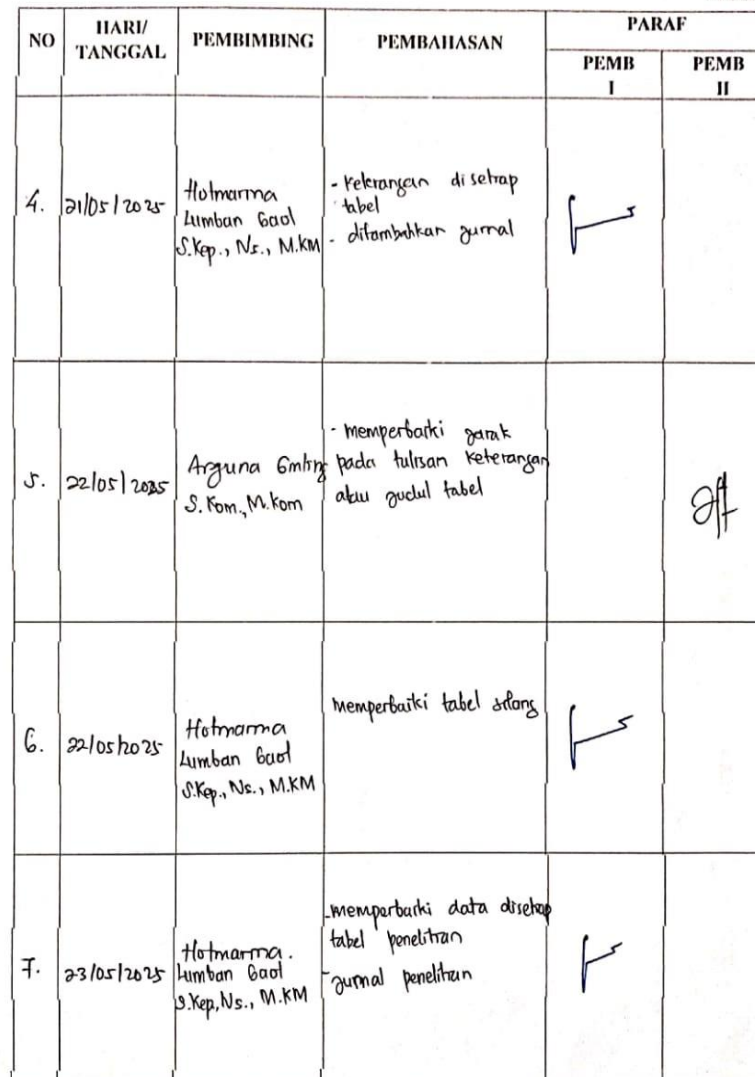 NO HARI/ TANGGAL PEMBIMBING PEMBAHASAN PARAF
PEMB I PEMB II
4. 21/05/2025
Hotmarma
Lumban Gaol
S.Kep., Ns., M.KM
- Keterangan disetiap
tabel
- ditambahkan jurnal
5. 22/05/2025
Arjuna Ginting
S.Kom., M.Kom
- memperbaiki jarak
pada tulisan keterangan
atau judul tabel
6. 22/05/2025
Hotmarma
Lumban Gaol
S.Kep., Ns., M.KM
memperbaiki tabel silang
7. 23/05/2025
Hotmarma.
Lumban Gaol
S.Kep, Ns., M.KM
- memperbaiki data disetiap
tabel penelitian
- jurnal penelitian